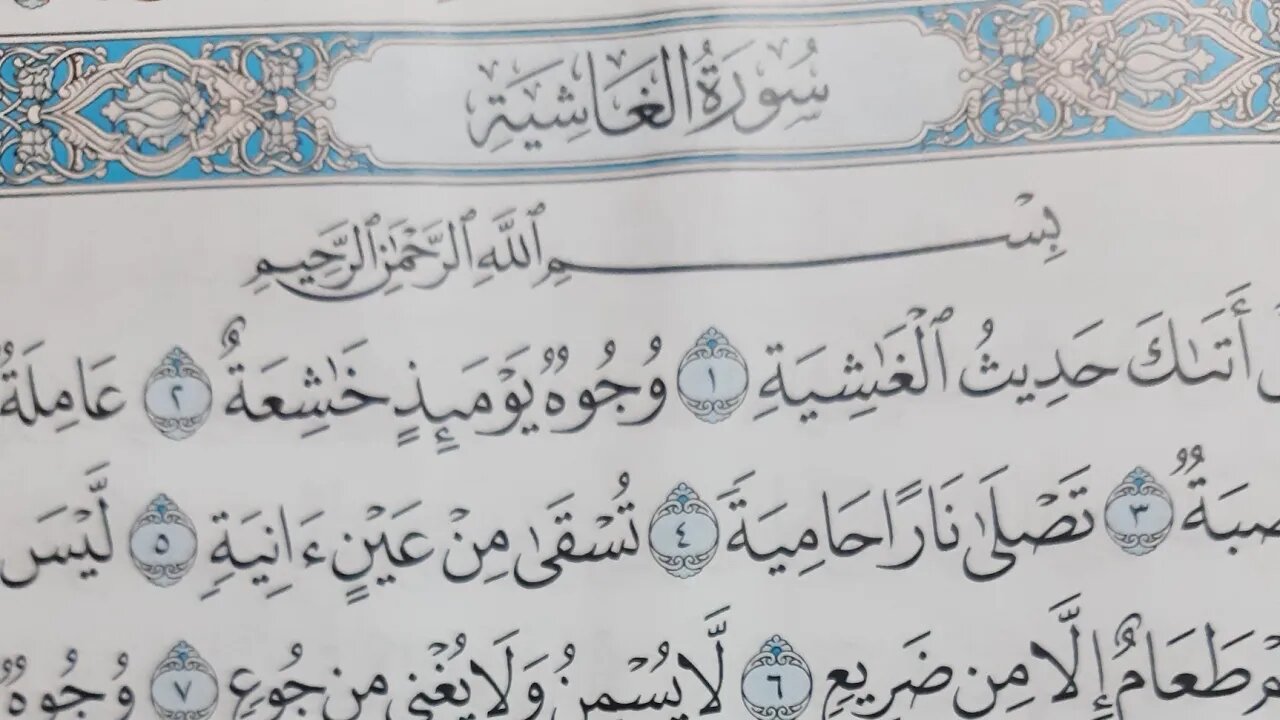 سُورَةُ الغَاشِيَةِ
بِسْمِ ٱللَّهِ ٱلرَّحْمَٰنِ ٱلرَّحِيمِ
أَتَىٰكَ حَدِيثُ ٱلْغَٰشِيَةِ ١ وُجُوهٌ يَوْمَئِذٍ خَٰشِعَةٌ ٢ عَامِلَةٌ
صِبَةٌ ٣ تَصْلَىٰ نَارًا حَامِيَةً ٤ تُسْقَىٰ مِنْ عَيْنٍ ءَانِيَةٍ ٥ لَّيْسَ
مْ طَعَامٌ إِلَّا مِن ضَرِيعٍ ٦ لَّا يُسْمِنُ وَلَا يُغْنِى مِن جُوعٍ ٧ وُجُوهٌ